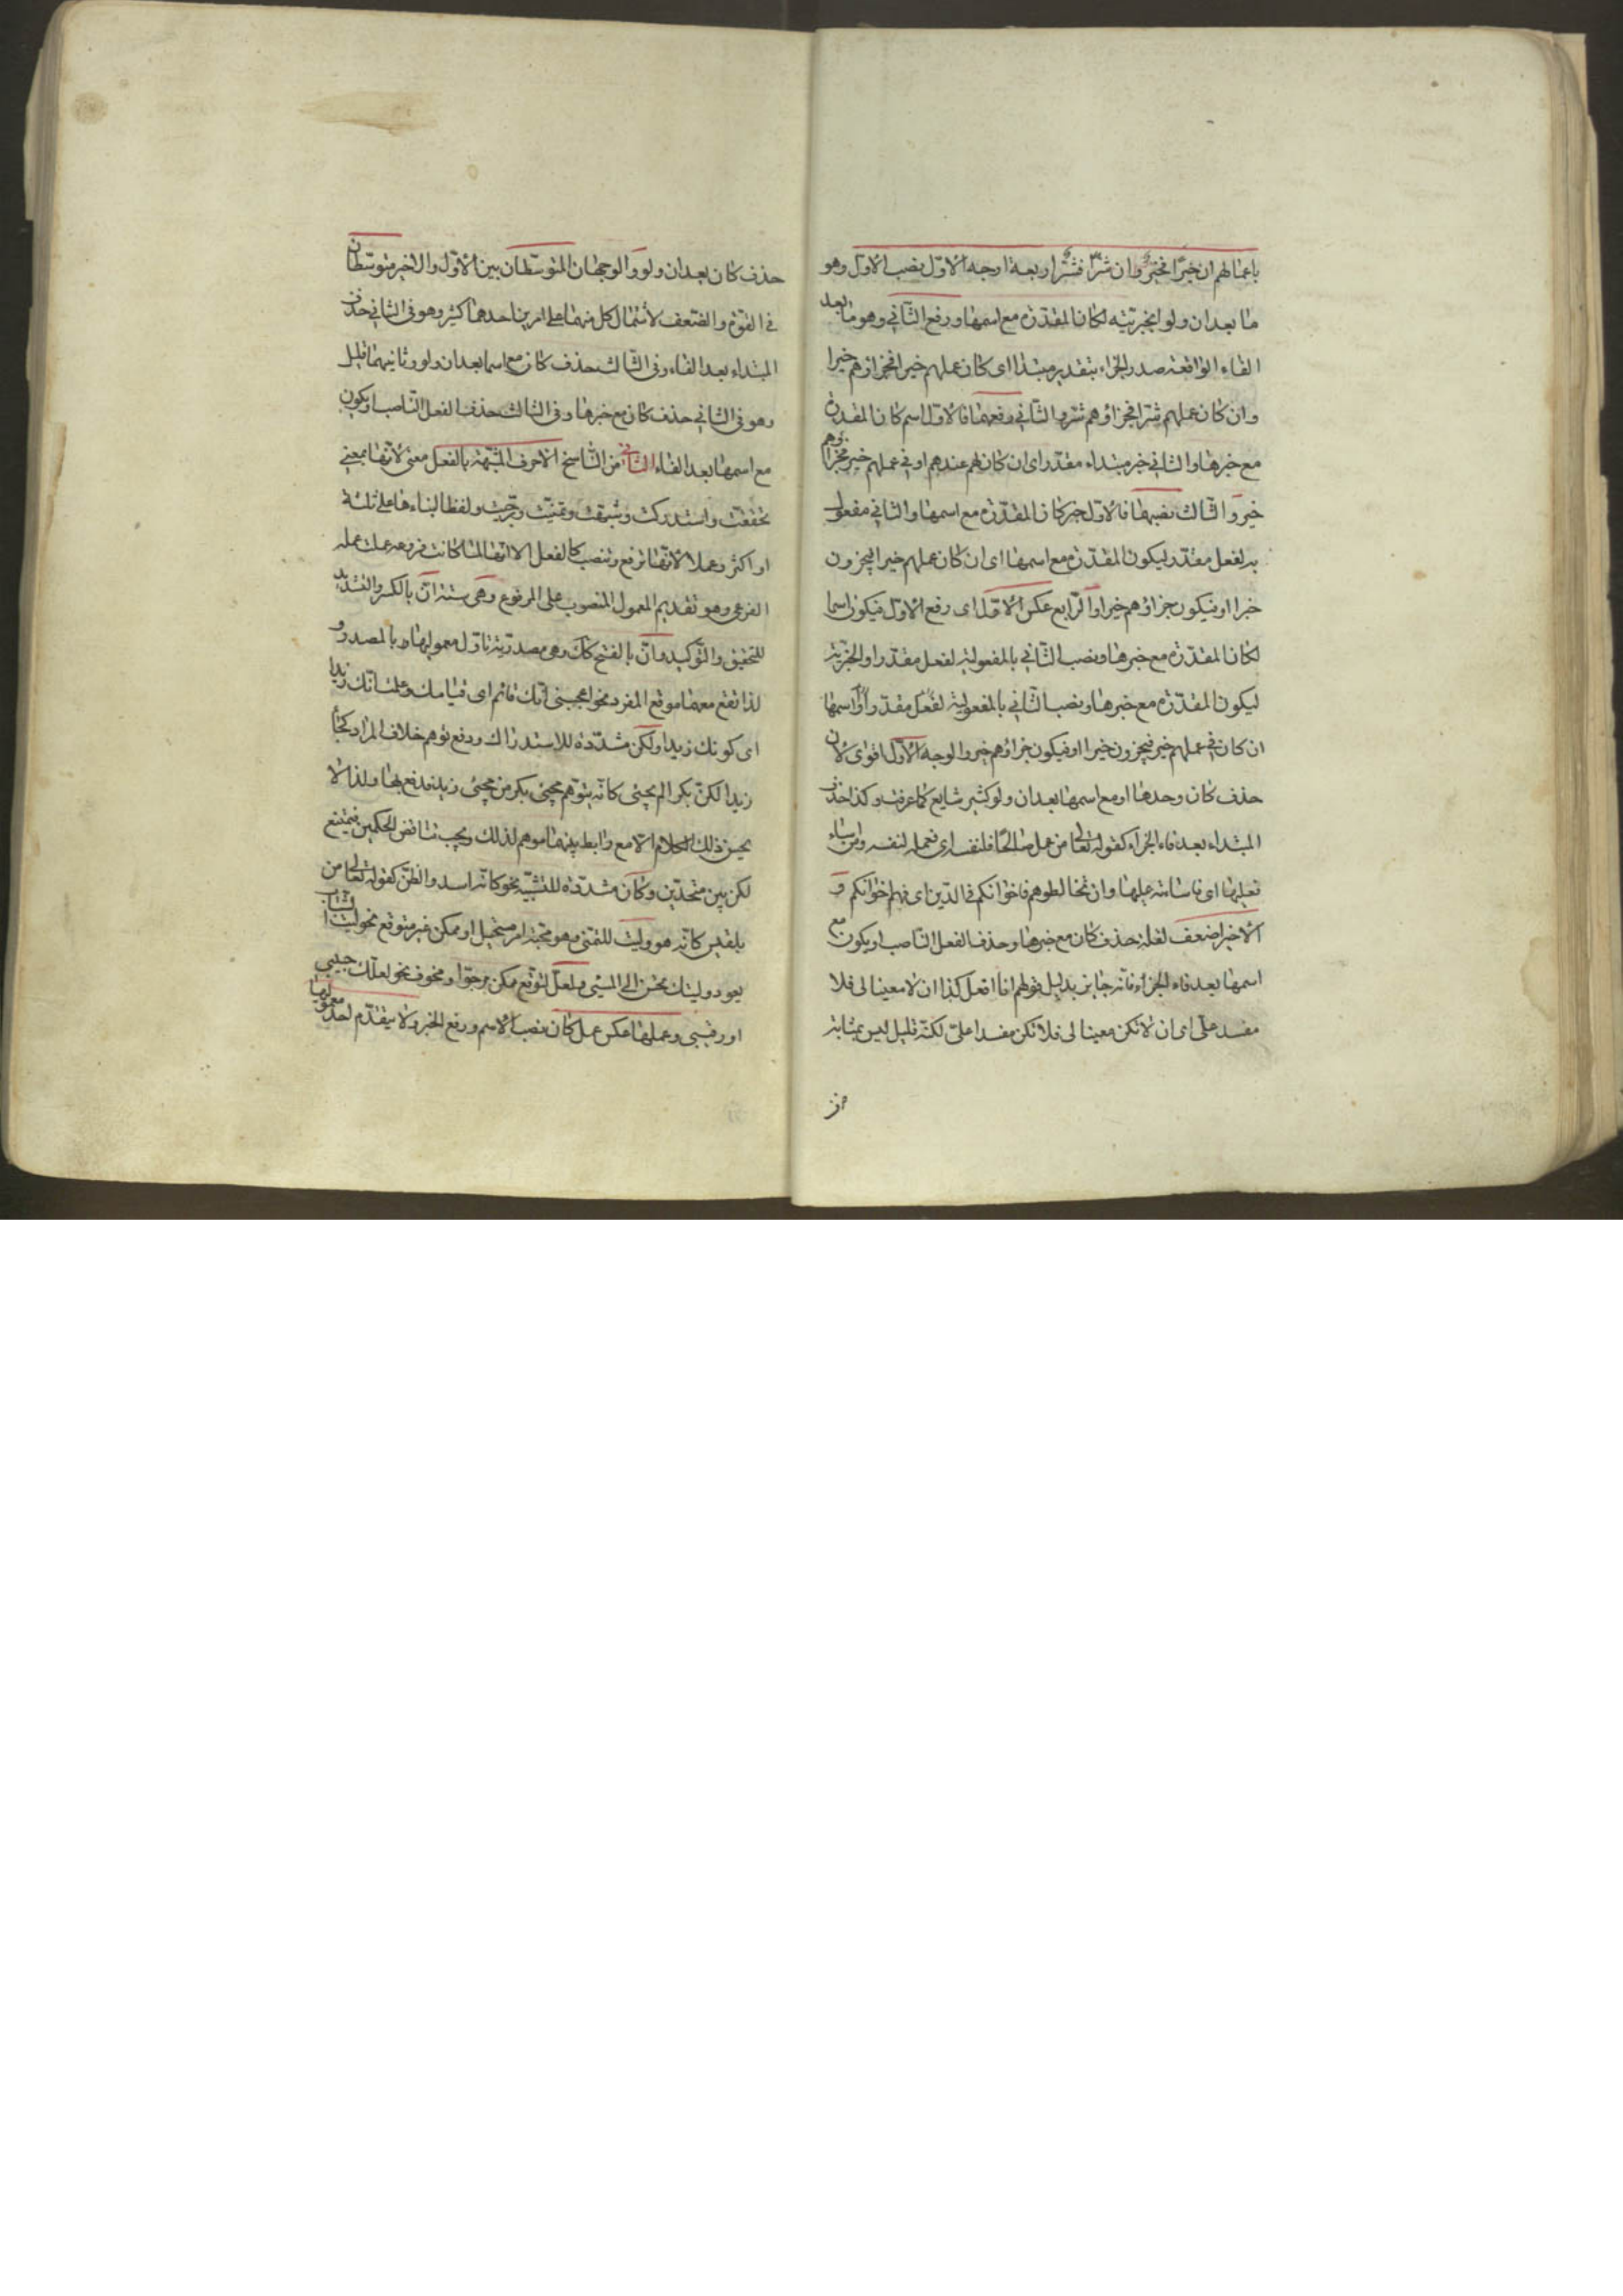 باعمالهم ان خيرا فخير وان شرا فشر اربعة اوجه الاول نصب الاول وهو
ما بعد ان ولو بخبريته لكان المقدرة مع اسمها ورفع الثاني وهو ما بعد
الفاء الواقعة صدر الجزاء بتقدير مبتدا اى كان عملهم خيرا فجزاؤهم خير
وان كان عملهم شرا فجزاؤهم شر والثاني رفعهما فالاول اسم كان المقدرة
مع خبرها والثاني خبر مبتداء مقدر اى ان كان لهم عندهم او فى عملهم خير فجزاؤهم
خير والثالث نصبهما فالاول خبر كان المقدرة مع اسمها والثاني مفعول
به لفعل مقدر ليكون المقدرة مع اسمها اى ان كان عملهم خيرا فيجزون
خيرا او فيكون جزاؤهم خيرا والرابع عكس الاول اى رفع الاول فيكون اسما
لكان المقدرة مع خبرها ونصب الثاني بالمفعولية لفعل مقدر او الخبرية
ليكون المقدرة مع خبرها ونصب الثاني بالمفعولية لفعل مقدر او اسمها
ان كان فى عملهم خير فيجزون خيرا او فيكون جزاؤهم خير والوجه الاول اقوى لان
حذف كان وحدها او مع اسمها بعد ان ولو كثير شايع كما عرفت وكذا حذف
المبتداء بعد فاء الجزاء كقوله تعالى من عمل صالحا فلنفسه اى فعمله لنفسه ومن اساء
فعليها اى فاساءته عليها وان تخالطوهم فاخوانكم فى الدين اى فهم اخوانكم و
الاخير اضعف لقلة حذف كان مع خبرها وحذف الفعل الناصب او يكون مع
اسمها بعد فاء الجزاء فانه جايز بدليل قولهم افعل كذا ان لا معينا لى فلا
مفسد على اى ان لا تكن معينا لى فلا تكن مفسدا على لكنه قليل ليس بمثابة
حذف كان بعد ان ولو والوجهان المتوسطان بين الاول والاخير متوسطان
فى القوة والضعف لاشتمال كل منهما على امرين احدهما كثير وهو فى الثاني حذف
المبتداء بعد الفاء وفى الثالث حذف كان مع اسمها بعد ان ولو وثانيهما قليل
وهو فى الثاني حذف كان مع خبرها وفى الثالث حذف الفعل الناصب او يكون
مع اسمها بعد الفاء الثاني من النواسخ الاحرف المشبهة بالفعل معنى لانها بمعنى
تحققت واستدركت وشبهت وتمنيت وترجيت ولفظا لبناءها على ثلثة
او اكثر وعملا لانها ترفع وتنصب كالفعل الا انها لما كانت فرعه عملت عمله
الفرعى وهو تقديم المعمول المنصوب على المرفوع وهى ستة ان بالكسر والتشديد
للتحقيق والتوكيد وان بالفتح كك وهى مصدرية تاول معموليها بالمصدر و
لذا تقع معهما موقع المفرد نحو اعجبنى انك قائم اى قيامك وعلمت انك زيد
اى كونك زيدا ولكن مشددة للاستدراك ودفع توهم خلاف المراد كجاء
زيد لكن بكرا لم يجئ كانه يتوهم مجئ بكر من مجئ زيد فدفع بها ولذا لا
يحسن ذلك الكلام الا مع رابط بينهما موهم لذلك ويجب تناقض الحكمين فيمتنع
لكن بين متحدين وكان مشددة للتشبيه نحو كانه اسد والظن كقوله تعالى من
بلقيس كانه هو وليت للتمنى وهو محبة امر مستحيل او ممكن غير متوقع نحو ليت الشباب
يعود وليتك تحسن الى المسئ ولعل لتوقع ممكن مرجو او مخوف نحو لعلك حبيبى
او رقيبى وعملها عكس عمل كان نصب الاسم ورفع الخبر ولا يتقدم احد معموليها